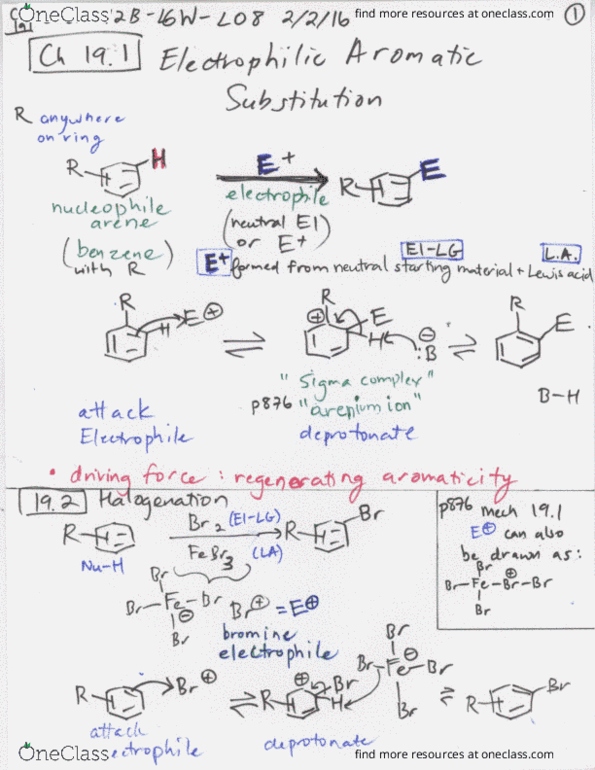 OneClass 2B-16W-L08 2/2/16 find more resources at oneclass.com 1
Ch 19.1 Electrophilic Aromatic
Substitution
R anywhere
on ring
R H E+ R E
electrophile
nucleophile
arene
(neutral El)
or E+
(benzene)
with R
El-LG L.A.
E+ formed from neutral starting material + Lewis acid
R H E⊕
R ⊕ E H ⊖ :B
R E
B-H
"Sigma complex"
p876 "arenium ion"
attack
Electrophile
deprotonate
• driving force : regenerating aromaticity
19.2 Halogenation
R Br2 (El-LG) R Br
FeBr3 (LA)
Nu-H
Br
Br-Fe-Br Br⊕ = E⊕
⊖
Br
bromine
electrophile
p876 mech 19.1
E⊕ can also
be drawn as:
Br
Br-Fe-Br-Br
⊕
Br
R Br⊕
R ⊕ Br H
Br
Br-Fe-Br
⊖
Br
R Br
attack
electrophile
deprotonate
OneClass find more resources at oneclass.com